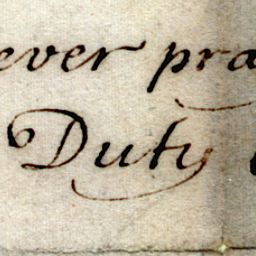 ever pra
Duty